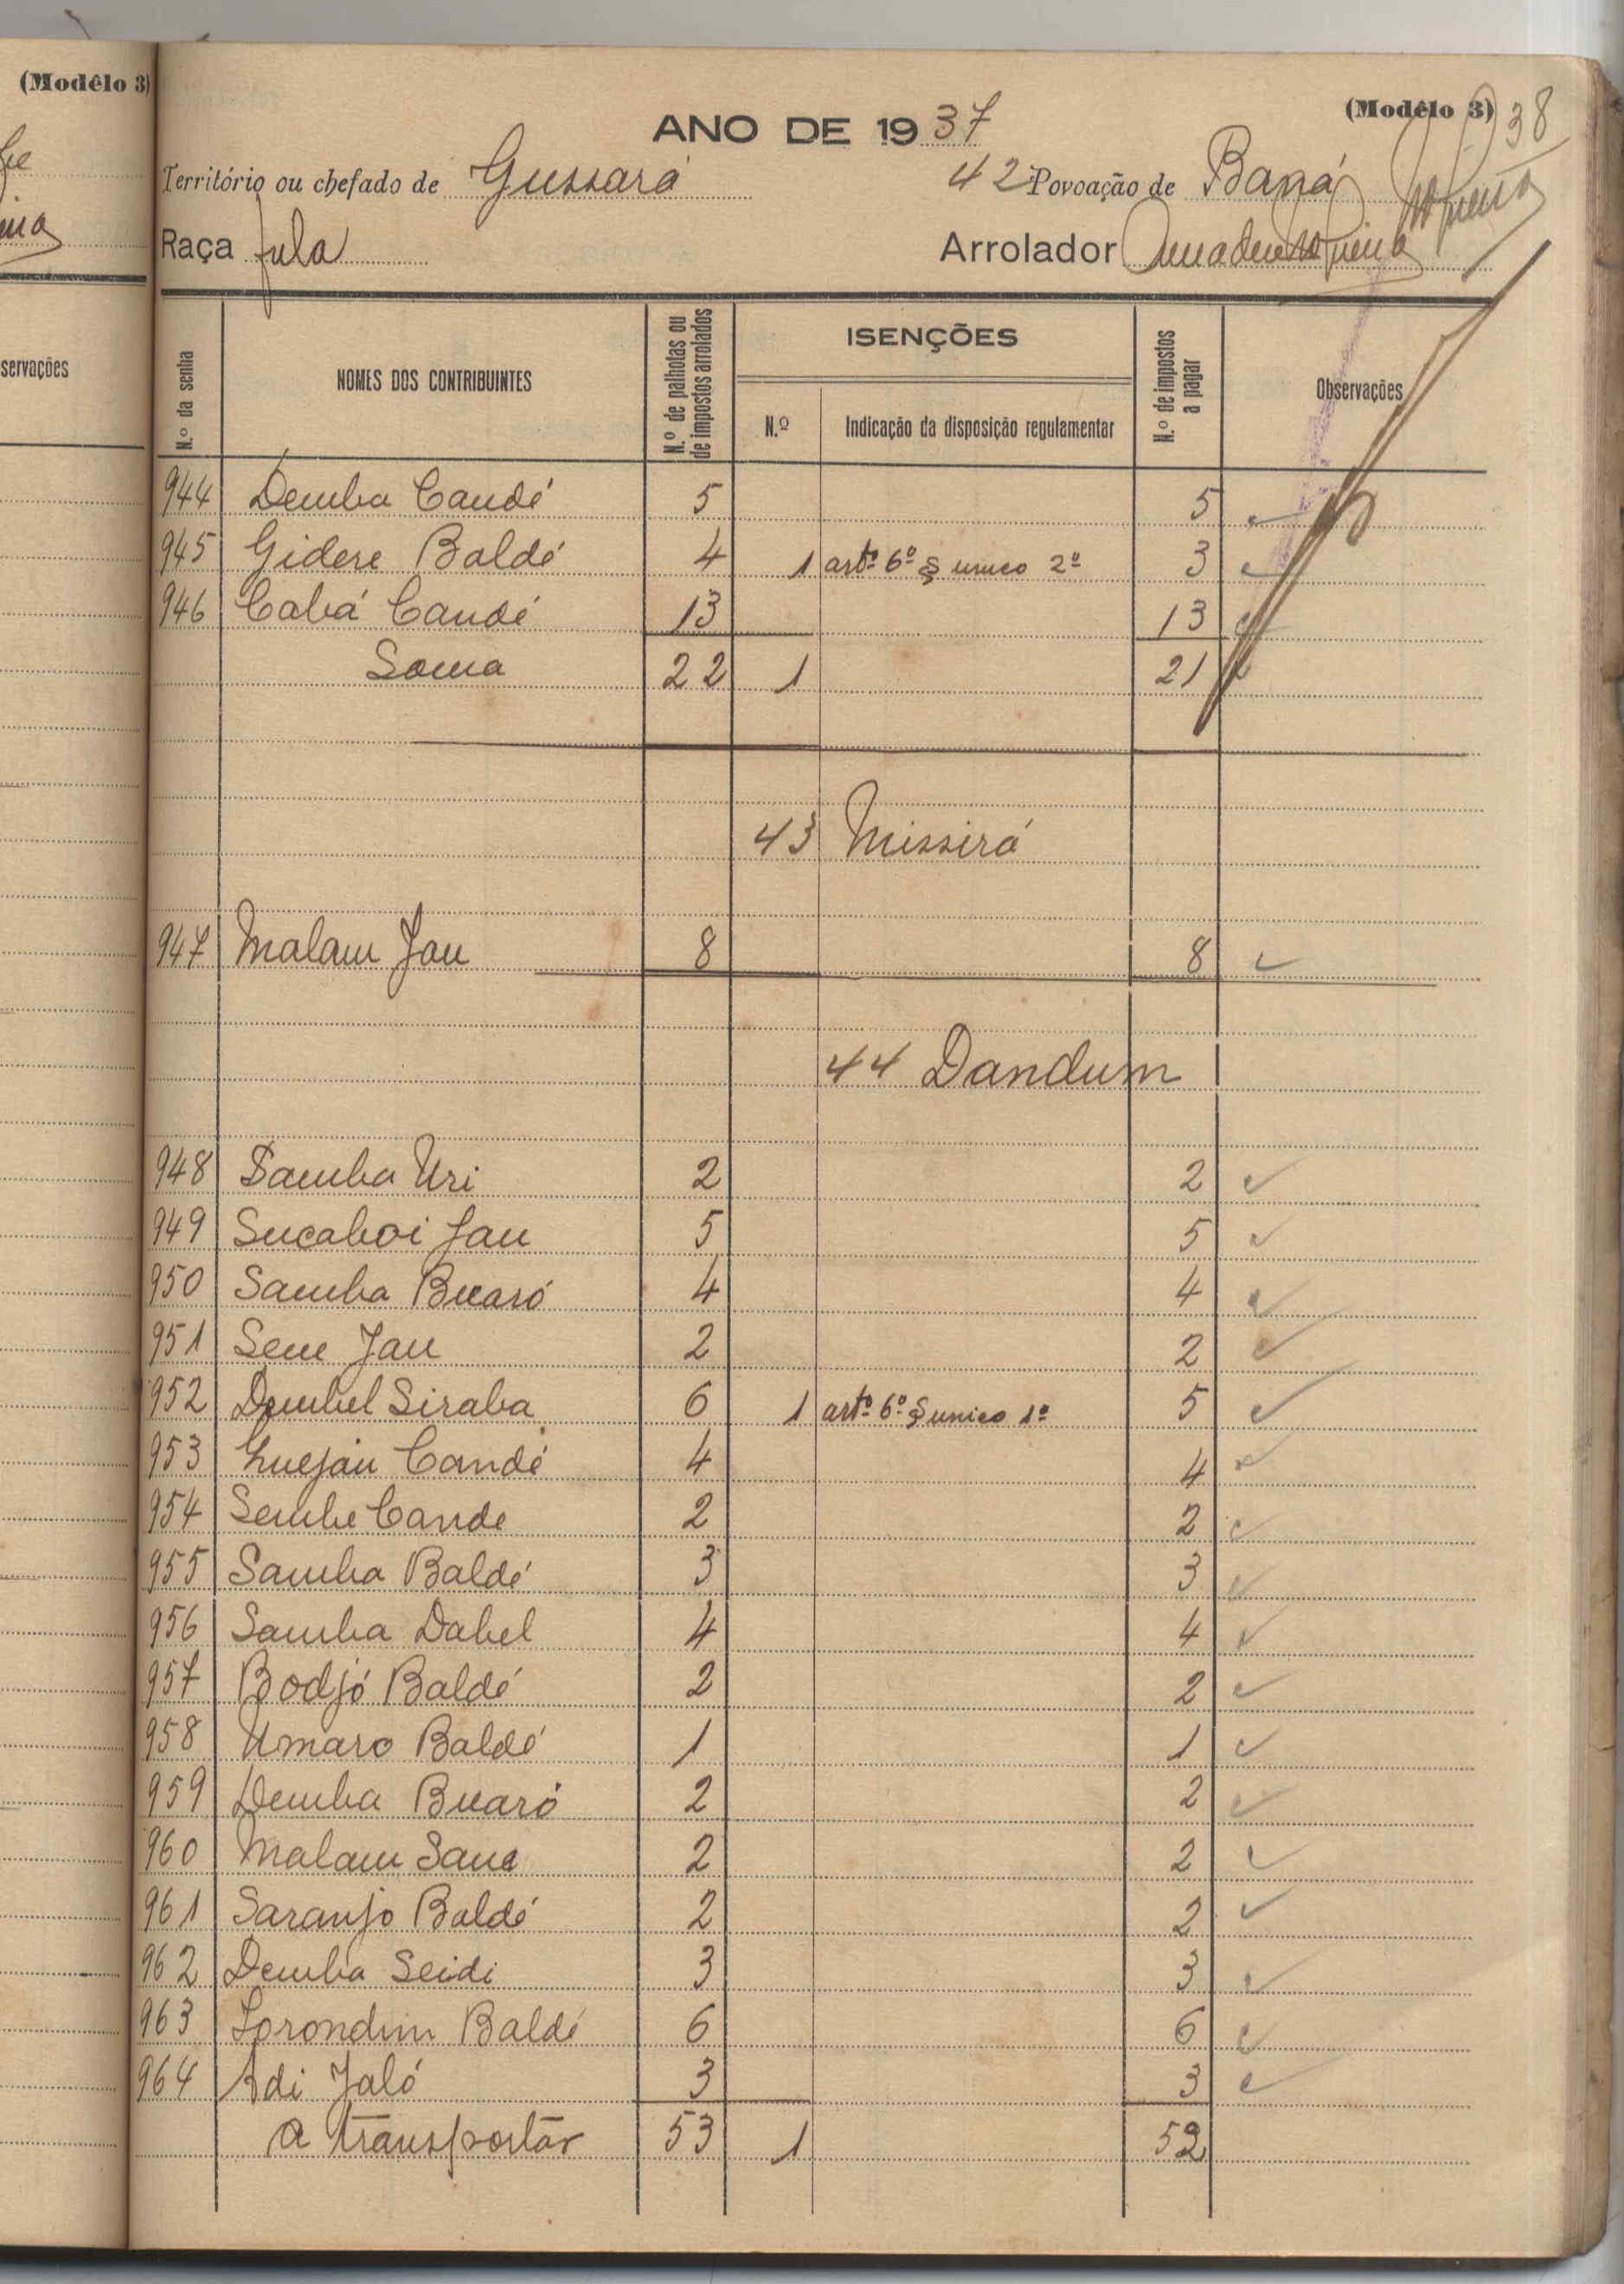 (Modêlo 3)
servações
(Modêlo 3) 38
ANO DE 1937
Território ou chefado de Gussará 42 Povoação de Baná
Raça fula Arrolador Amadeu Nogueira
N.º da senha NOMES DOS CONTRIBUINTES N.º de palhotas ou de impostos arrolados ISENÇÕES N.º de impostos a pagar Observações
N.º Indicação da disposição regulamentar
944 Demba Candé 5 5
945 Gidere Baldé 4 1 artº 6º § unico 2º 3
946 Cabá Candé 13 13
Soma 22 1 21
43 Missirá
947 Malam Jau 8 8
44 Dandum
948 Samba Uri 2 2
949 Sucaboi Jau 5 5
950 Samba Buaró 4 4
951 Sene Jau 2 2
952 Dembel Siraba 6 1 artº 6º § unico 1º 5
953 Candé 4 4
954 Sembe Cande 2 2
955 Samba Baldé 3 3
956 Samba Dabel 4 4
957 Bodjó Baldé 2 2
958 Umaro Baldé 1 1
959 Demba Buaró 2 2
960 Malam Sane 2 2
961 Saranjo Baldé 2 2
962 Demba Seidi 3 3
963 Lorondim Baldé 6 6
964 Adi Jaló 3 3
a transportar 53 1 52